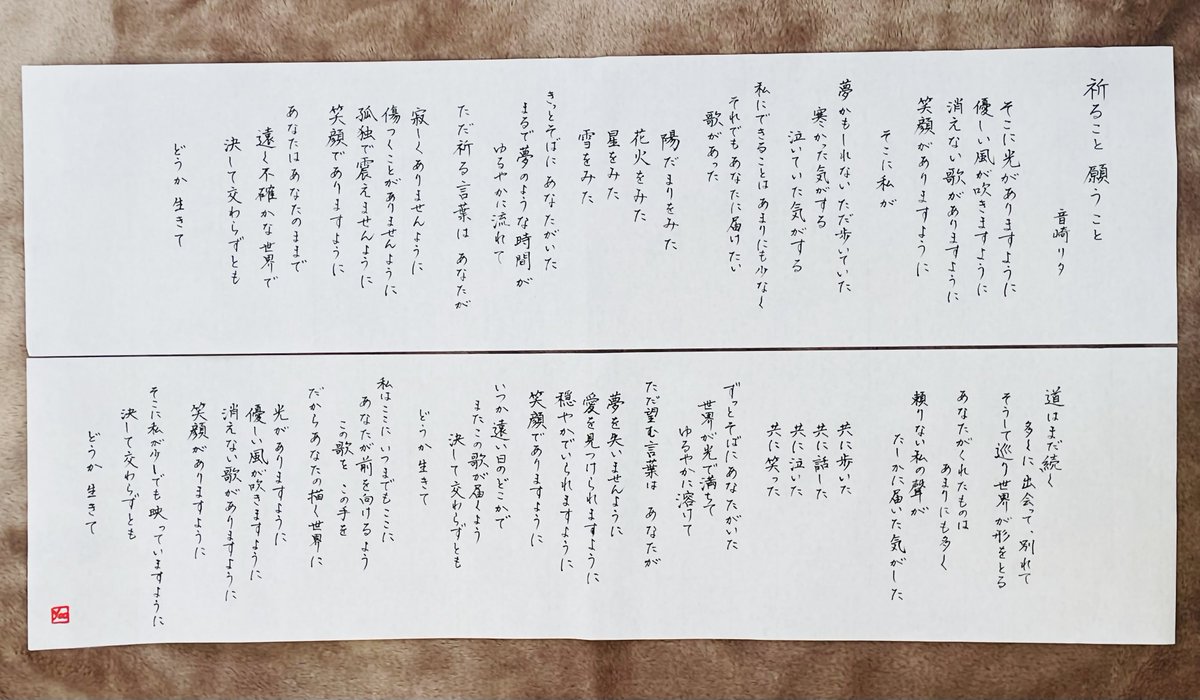 祈ること 願うこと
音崎リタ
そこに光がありますように
優しい風が吹きますように
消えない歌がありますように
笑顔がありますように
そこに私が
夢かもしれないただ歩いていた
寒かった気がする
泣いていた気がする
私にできることは あまりにも少なく
それでもあなたに届けたい
歌があった
陽だまりをみた
花火をみた
星をみた
雪をみた
きっとそばに あなたがいた
まるで夢のような時間が
ゆるやかに流れて
ただ祈る言葉は あなたが
寂しくありませんように
傷つくことがありませんように
孤独で震えませんように
笑顔でありますように
あなたはあなたのままで
遠く不確かな世界で
決して交わらずとも
どうか 生きて
道はまだ続く
多くに出会って、別れて
そうして巡り世界が形をとる
あなたがくれたものは
あまりにも多く
頼りない私の聲が
たしかに届いた気がした
共に歩いた
共に話した
共に泣いた
共に笑った
ずっとそばにあなたがいた
世界が光で満ちて
ゆるやかに溶けて
ただ望む言葉は あなたが
夢を失いませんように
愛を見つけられますように
穏やかでいられますように
笑顔でありますように
いつか遠い日のどこかで
またこの歌が届くよう
決して交わらずとも
どうか 生きて
私はここに いつまでもここに
あなたが前を向けるよう
この歌を この手を
だからあなたの描く世界に
光がありますように
優しい風が吹きますように
消えない歌がありますように
笑顔がありますように
そこに私が少しでも映っていますように
決して交わらずとも
どうか 生きて